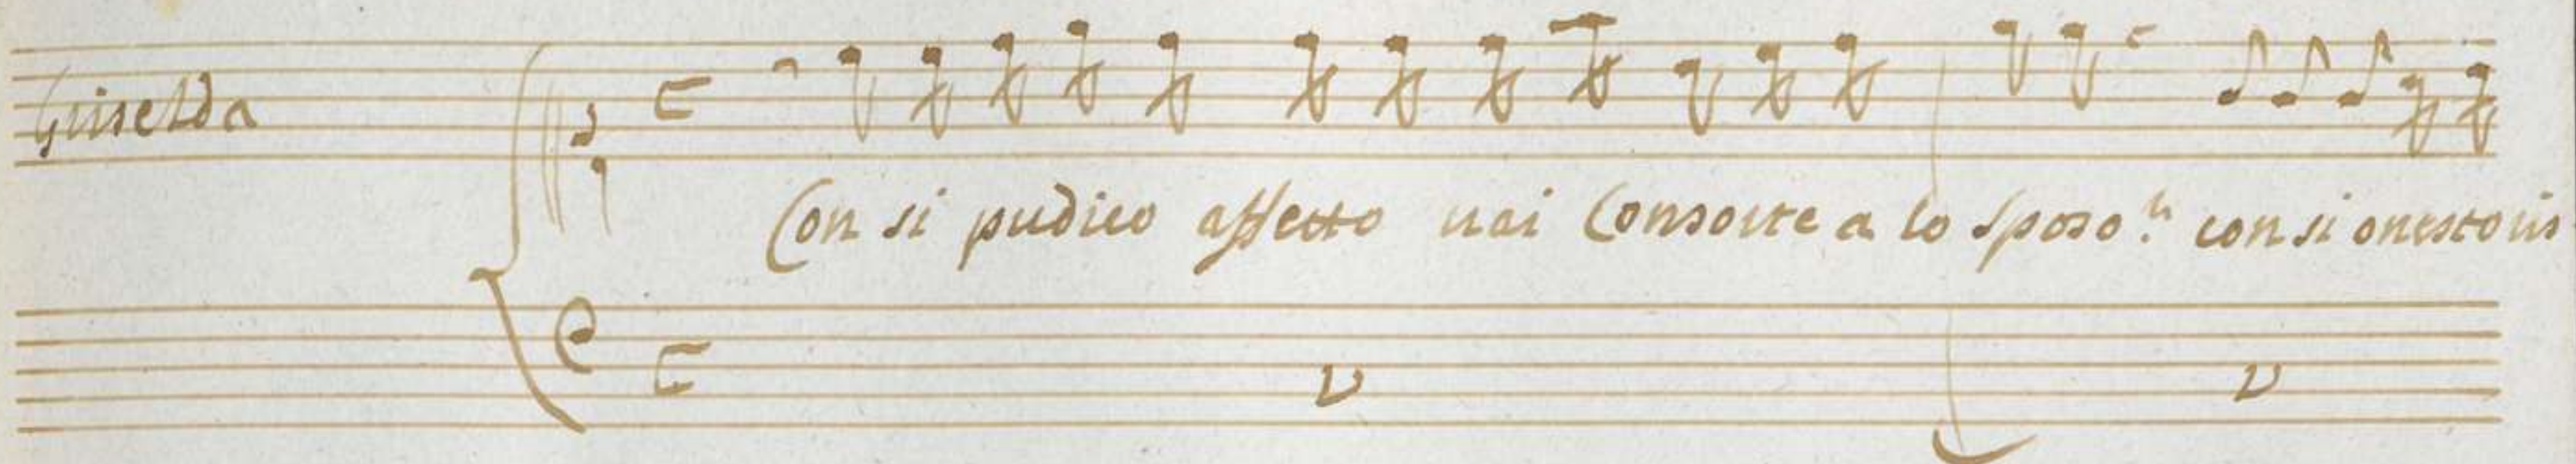 Griselda
Con si pudico affetto vai Consorte a lo sposo? con si onesto ris